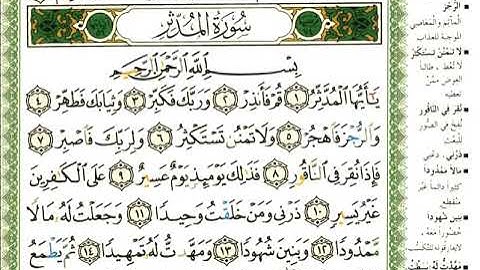 سُورَةُ المُدَّثِّر
بِسْمِ ٱللَّهِ ٱلرَّحْمَٰنِ ٱلرَّحِيمِ
يَٰٓأَيُّهَا ٱلْمُدَّثِّرُ ١ قُمْ فَأَنذِرْ ٢ وَرَبَّكَ فَكَبِّرْ ٣ وَثِيَابَكَ فَطَهِّرْ ٤
وَٱلرُّجْزَ فَٱهْجُرْ ٥ وَلَا تَمْنُن تَسْتَكْثِرُ ٦ وَلِرَبِّكَ فَٱصْبِرْ ٧
فَإِذَا نُقِرَ فِى ٱلنَّاقُورِ ٨ فَذَٰلِكَ يَوْمَئِذٍ يَوْمٌ عَسِيرٌ ٩ عَلَى ٱلْكَٰفِرِينَ
غَيْرُ يَسِيرٍ ١٠ ذَرْنِى وَمَنْ خَلَقْتُ وَحِيدًا ١١ وَجَعَلْتُ لَهُۥ مَالًا
مَّمْدُودًا ١٢ وَبَنِينَ شُهُودًا ١٣ وَمَهَّدتُّ لَهُۥ تَمْهِيدًا ١٤ ثُمَّ يَطْمَعُ
الرُّجْزَ
المآثم والمعاصي
الموجبة للعذاب
لا تمنن تستكثر
لا تُعْطِ، طالباً
العوض ممّن
تعطيه
نُقِرَ في النّاقور
نُفِخَ في الصُّور
للبعث
ذرْني: دعْني
مالا ممدودا
كثيراً دائماً غير
منقطع
بنين شهودا
حضوراً معه،
مهّدْتُ له: بسطْتُ